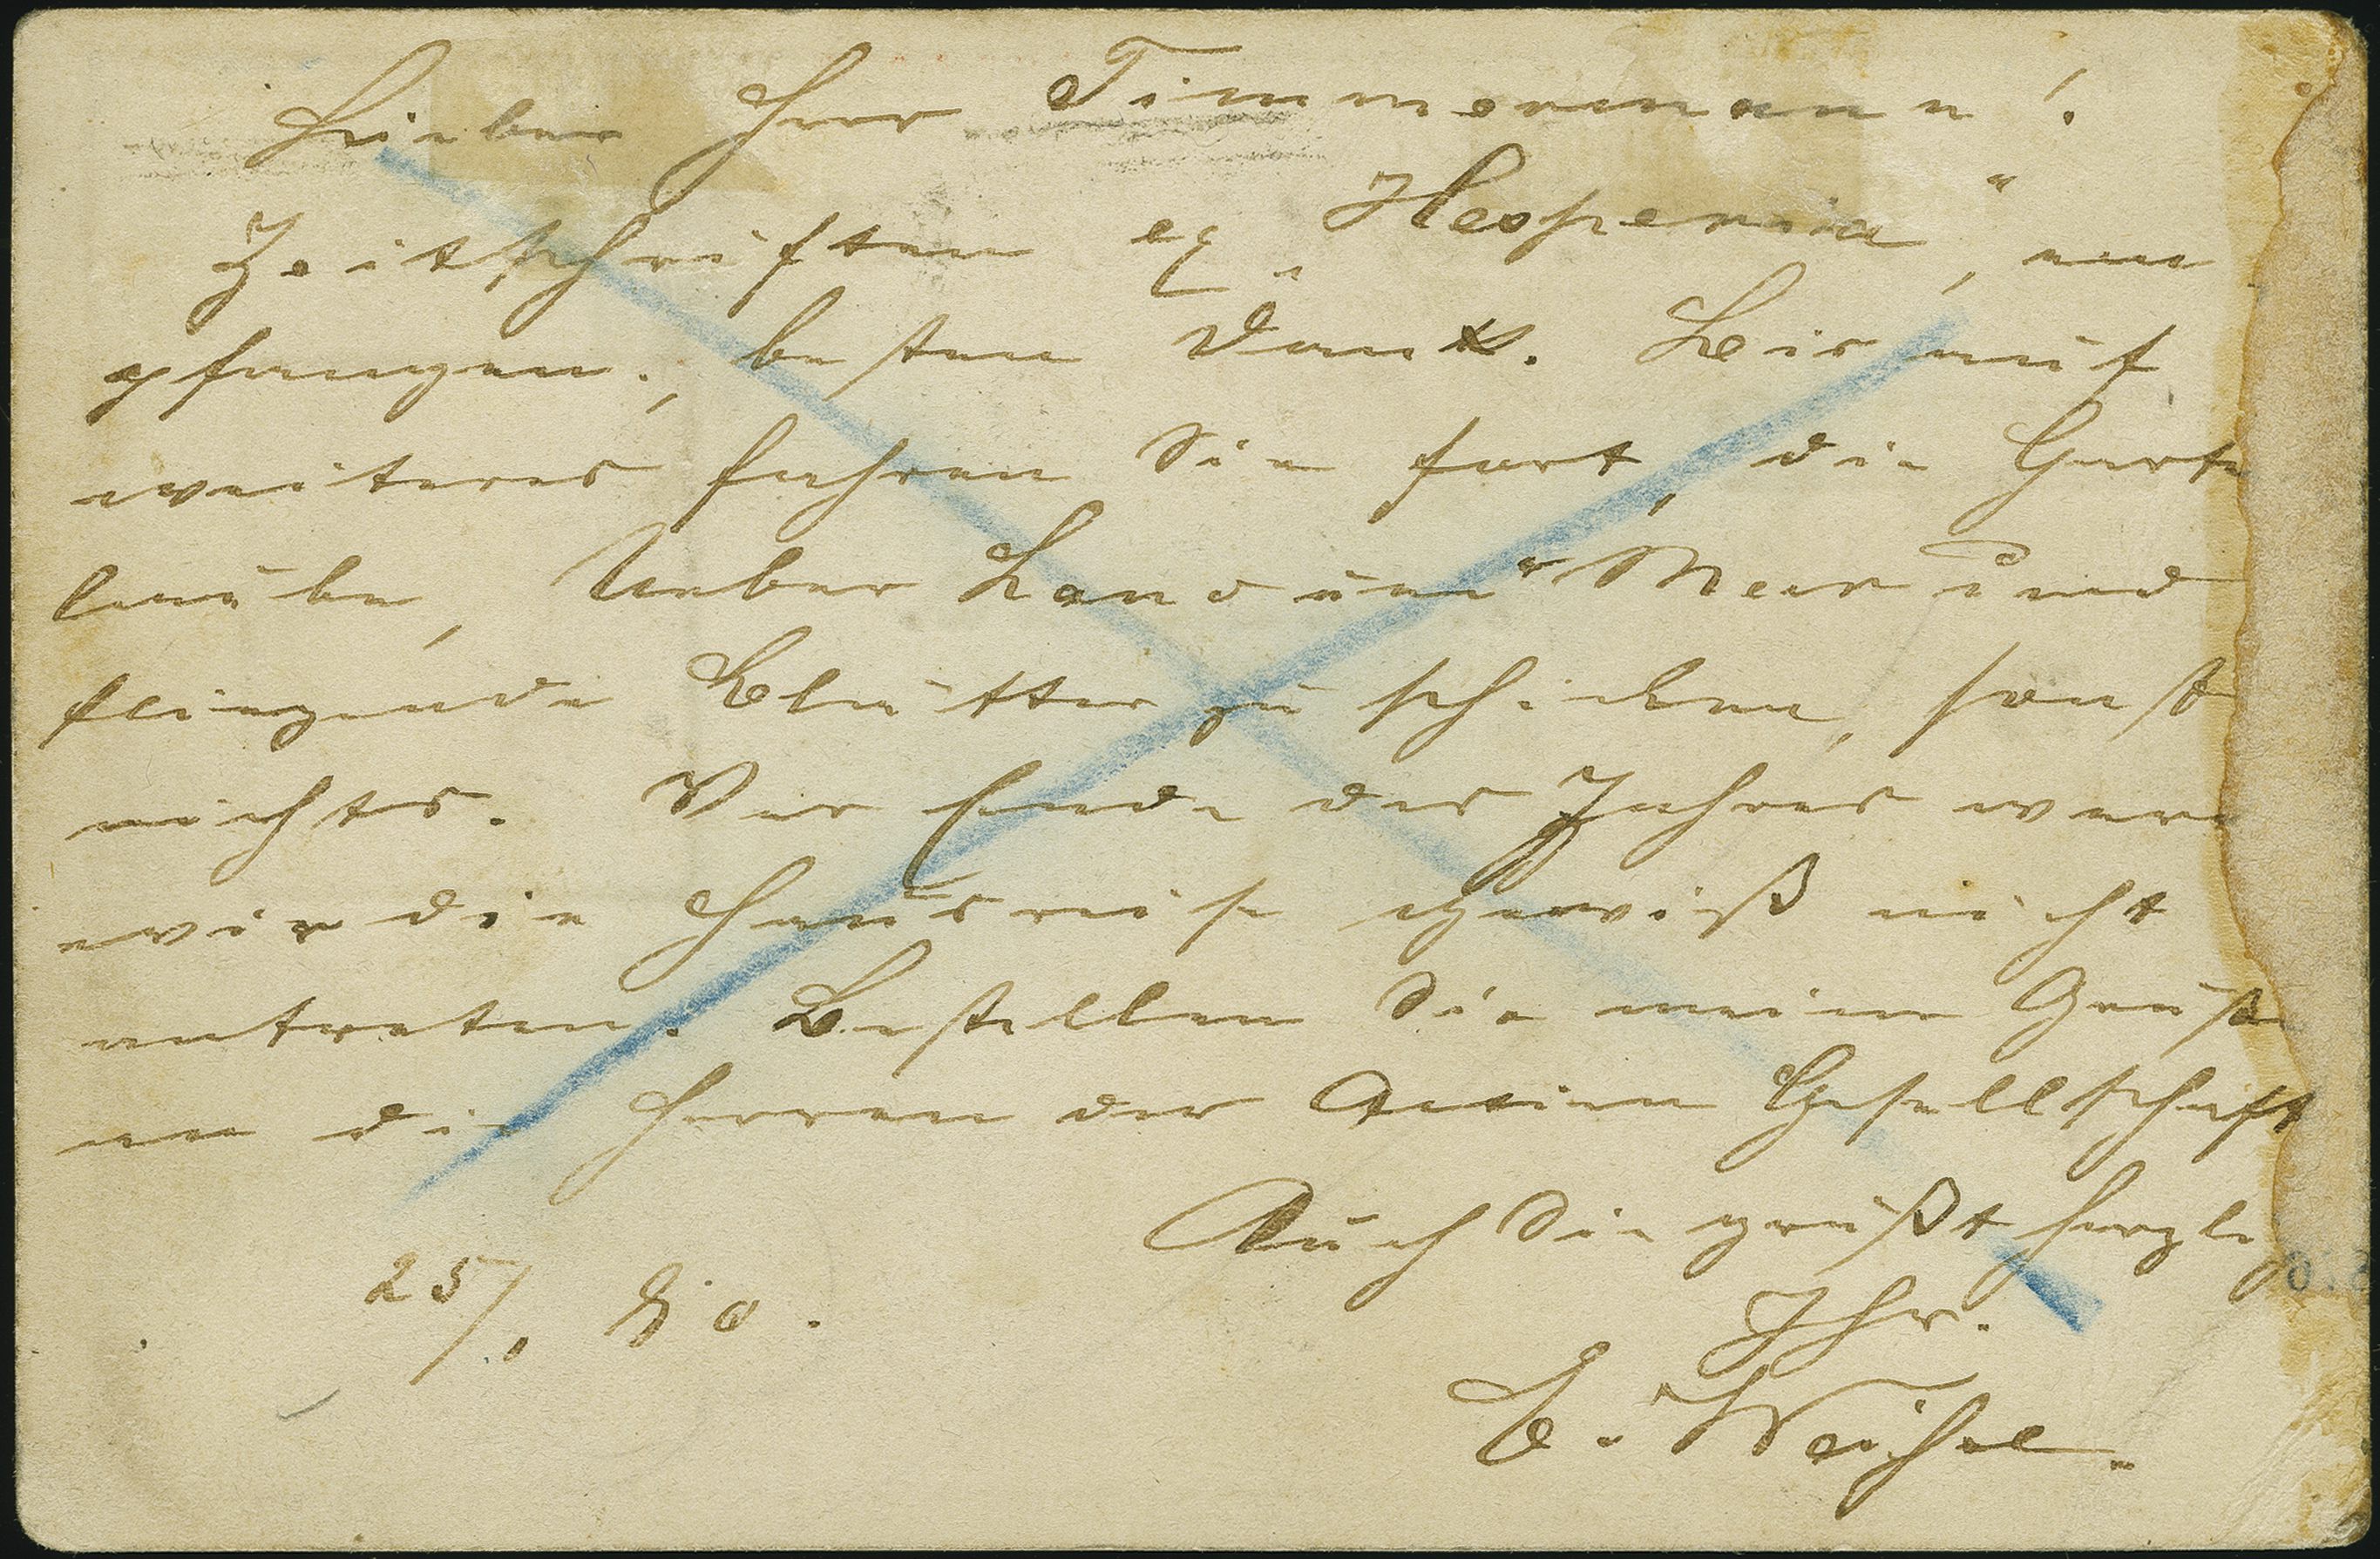 Lieber Herr Timmermann!
Zeitschriften ex „Hesperia“, em
pfangen, besten Dank. Bis auf
weiteres fahren Sie fort, die Garten
laube, Ueber Land und Meer und
fliegende Blätter zu schicken, sonst
nichts. Vor Ende des Jahres werd
wir die Hausreise gewiß nicht
antreten. Bestellen Sie meine Grüße
an die Herren der Gesellschaft
Auch Sie grüßt herzl
Ihr.
25/. 80.
E.